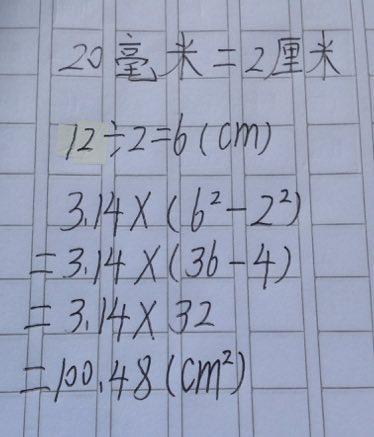 20毫米=2厘米
12÷2=6(cm)
3.14×(6²-2²)
=3.14×(36-4)
=3.14×32
=100.48(cm²)